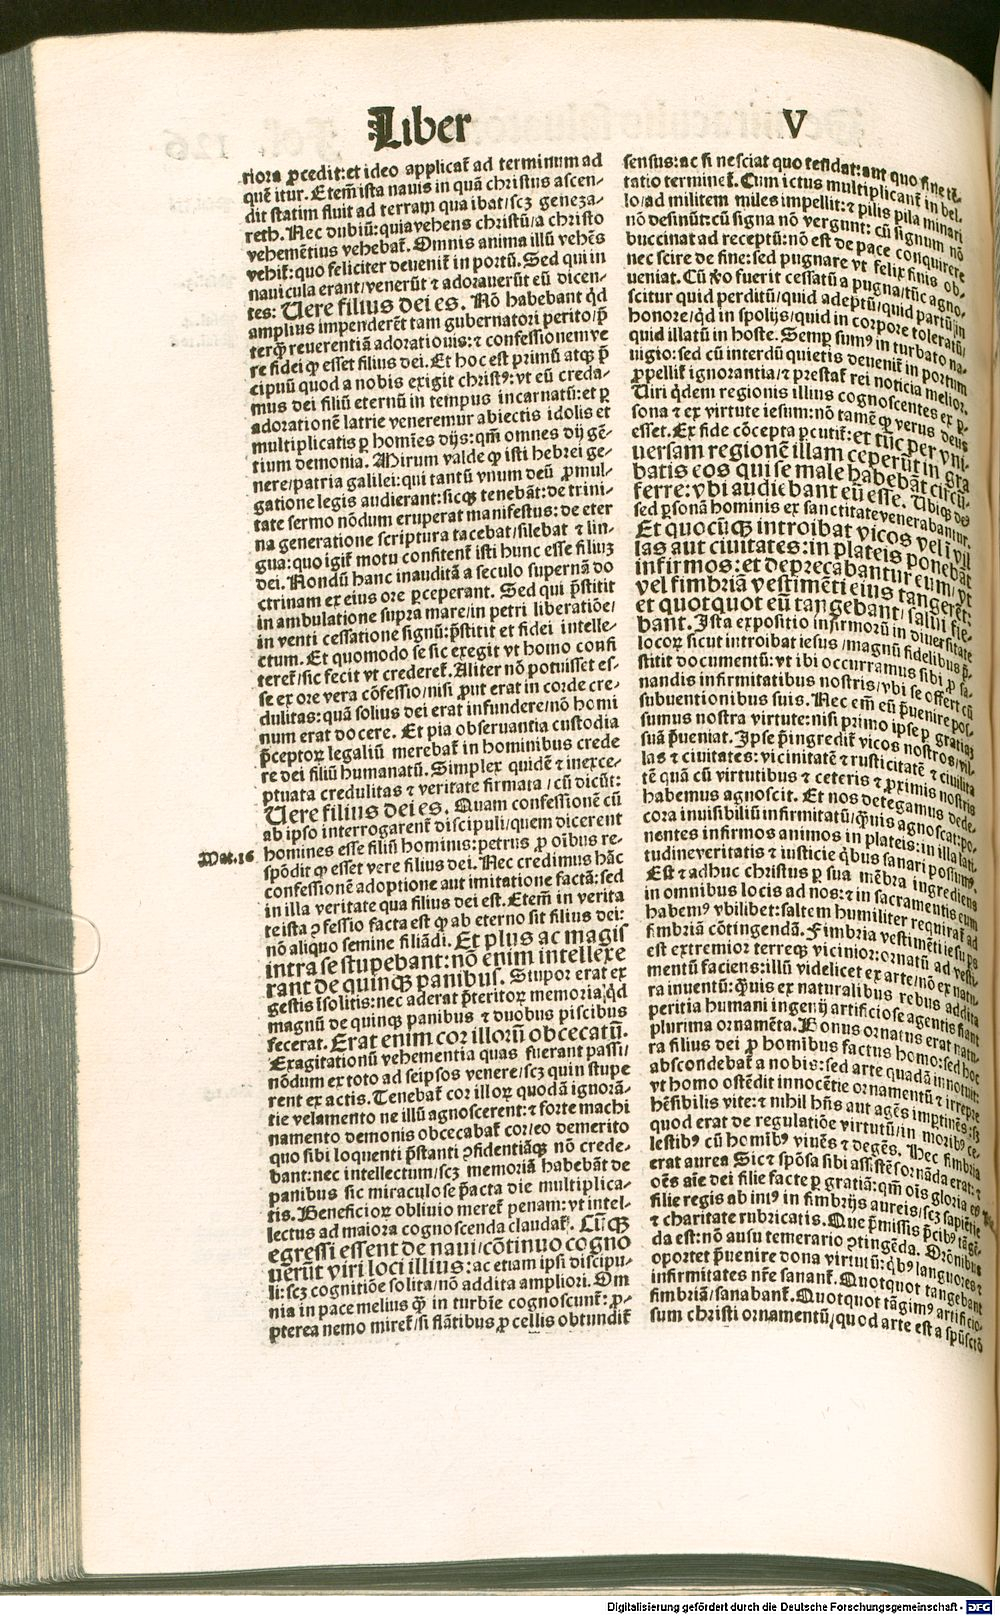 Liber V
riora ꝓcedit: et ideo applicat̃ ad terminum ad
quẽ itur. Etem̃ ista nauis in quã christus ascen-
dit statim fluit ad terram qua ibat/scꝫ geneza-
reth. Nec dubiũ: quia vehens christũ/a christo
vehemẽtius vehebat̃. Omnis anima illũ vehẽs
vehit̃: quo feliciter deuenit̃ in portũ. Sed qui in
nauicula erant/venerũt ⁊ adorauerũt eũ dicen-
tes: Uere filius dei es. Nõ habebant qd̓
amplius impenderẽt tam gubernatori perito/p̃
terqꝫ̃ reuerentiã adorationis: ⁊ confessionem ve
re fidei ꝙ esset filius dei. Et hoc est primũ atqꝫ p̃
cipuũ quod a nobis exigit christꝰ: vt eũ creda-
mus dei filiũ eternũ in tempus incarnatũ: et ꝑ
adorationẽ latrie veneremur abiectis idolis et
multiplicatis ꝑ homĩes dijs: qm̃ omnes dij gẽ-
tium demonia. Mirum valde ꝙ isti hebrei ge-
nere/patria galilei: qui tantũ vnum deũ ꝓmul-
gatione legis audierant: sicqꝫ tenebãt: de trini-
tate sermo nõdum eruperat manifestus: de eter
na generatione scriptura tacebat/silebat ⁊ lin-
gua: quo igit̃ motu confitent̃ isti hunc esse filiuꝫ
dei. Nondũ hanc inauditã a seculo supernã do
ctrinam ex eius ore ꝑceperant. Sed qui p̃stitit
in ambulatione supra mare/in petri liberatiõe/
in venti cessatione signũ: p̃stitit et fidei intelle-
ctum. Et quomodo se sic exegit vt homo confi
teret̃/sic fecit vt crederet̃. Aliter nõ potuisset es-
se ex ore vera cõfessio/nisi ꝓut erat in corde cre-
dulitas: quã solius dei erat infundere/nõ homi
num erat docere. Et pia obseruantia custodia
p̃ceptoꝝ legaliũ merebat̃ in hominibus crede
re dei filiũ humanatũ. Simplex quidẽ ⁊ inexce-
ptuata credulitas ⁊ veritate firmata/cũ dicũt:
Uere filius dei es. Quam confessionẽ cũ
ab ipso interrogarent̃ discipuli/quem dicerent
Mat. 16
homines esse filiũ hominis: petrus ꝓ oĩbus re-
spõdit ꝙ esset vere filius dei. Nec credimus hãc
confessionẽ adoptione aut imitatione factã: sed
in illa veritate qua filius dei est. Etem̃ in verita
te ista ꝯfessio facta est ꝙ ab eterno sit filius dei:
nõ aliquo semine filiãdi. Et plus ac magis
intra se stupebant: nõ enim intellexe
rant de quinqꝫ panibus. Stupor erat ex
gestis ĩsolitis: nec aderat p̃teritoꝝ memoria/qd̓
magnũ de quinqꝫ panibus ⁊ duobus piscibus
fecerat. Erat enim cor illorũ obcecatũ.
Exagitationũ vehementia quas fuerant passi/
nõdum ex toto ad seipsos venere/scꝫ quin stupe
rent ex actis. Tenebat̃ cor illoꝝ quodã ignorã-
tie velamento ne illũ agnoscerent: ⁊ forte machi
namento demonis obcecabat̃ cor/eo demerito
quo sibi loquenti p̃stanti ꝯfidentiãqꝫ nõ crede-
bant: nec intellectum/scꝫ memoriã habebãt de
panibus sic miraculose p̃acta die multiplica-
tis. Beneficioꝝ obliuio meret̃ penam: vt intel-
lectus ad maiora cognoscenda claudat̃. Cũqꝫ
egressi essent de naui/cõtinuo cogno
uerũt viri loci illius: ac etiam ipsi discipu-
li: scꝫ cognitiõe solita/nõ addita ampliori. Om
nia in pace melius qꝫ̃ in turbĩe cognoscunt̃: ꝓ-
pterea nemo miret̃/si flãtibus ꝓcellis obtundit̃
sensus: ac si nesciat quo tendat: aut quo fine tẽ-
tatio terminet̃. Cum ictus multiplicant̃ in bel-
lo/ad militem miles impellit: ⁊ pilis pila minari
nõ desinũt: cũ signa nõ vergunt: cũ signum nõ
buccinat ad receptũ: nõ est de pace conquirere
nec scire de fine: sed pugnare vt felix finis ob-
ueniat. Cũ ꝟo fuerit cessatũ a pugna/tũc agno-
scitur quid perditũ/quid adeptũ/quid partũ in
honore/qd̓ in spolijs/quid in corpore toleratũ/
quid illatũ in hoste. Semꝑ sumꝰ in turbato na-
uigio: sed cũ interdũ quietis deuenit̃ in portum
ꝓpellit̃ ignorantia/⁊ prestat̃ rei noticia melior.
Uiri qd̓em regionis illius cognoscentes ex ꝑ-
sona ⁊ ex virtute iesum: nõ tamẽ ꝙ verus deus
esset. Ex fide cõcepta ꝑcutit̃: et tũc per vni-
uersam regionẽ illam ceperũt in gra
batis eos qui se male habebãt circũ-
ferre: vbi audiebant eũ esse. Ubiqꝫ deꝰ
sed ꝑsonã hominis ex sanctitate venerabantur.
Et quocũqꝫ introibat vicos vel ĩ vil
las aut ciuitates: in plateis ponebãt
infirmos: et deprecabantur eum/vt
vel fimbriã vestimẽti eius tangerẽt:
et quotquot eũ tangebant/salui fie-
bant. Ista expositio infirmorũ in diuersitate
locoꝝ sicut introibat iesus/magnũ fidelibus p̃-
stitit documentũ: vt ibi occurramus sibi ꝓ sa-
nandis infirmitatibus nostris/vbi se offert cũ
subuentionibus suis. Nec em̃ eũ p̃uenire pos-
sumus nostra virtute: nisi primo ipse ꝑ gratiaꝫ
suã p̃ueniat. Ipse p̃ingredit̃ vicos nostros/vil-
las ⁊ ciuitates: vicinitatẽ ⁊ rusticitatẽ ⁊ ciuilita
tẽ quã cũ virtutibus ⁊ ceteris ⁊ ꝓximis nostris
habemus agnoscit. Et nos detegamus dede-
cora inuisibiliũ infirmitatũ/qͣuis agnoscat: po-
nentes infirmos animos in plateis: in illa lati-
tudine veritatis ⁊ iusticie qͥbus sanari possumꝰ.
Est ⁊ adhuc christus ꝑ sua mẽbra ingrediens
in omnibus locis ad nos: ⁊ in sacramentis eum
habemꝰ vbilibet: saltem humiliter requirat̃ ad
fimbriã cõtingendã. Fimbria vestimẽti iesu ps
est extremior terreqꝫ vicinior: ornatũ ad vesti-
mentũ faciens: illũ videlicet ex arte/nõ ex natu
ra inuentũ: qͣuis ex naturalibus rebus addita
peritia humani ingenij artificiose agentis fiant
plurima ornamẽta. Bonus ornatus erat natu-
ra filius dei ꝓ homibus factus homo: sed hoc
abscondebat̃ a nobis: sed arte quadã innotuit:
vt homo ostẽdit innocẽtie ornamentũ ⁊ irrepre
hẽsibilis vite: ⁊ nihil hñs aut agẽs imꝑtinẽs: sꝫ
quod erat de regulatiõe virtutũ/in moribꝰ ce-
lestibꝰ cũ homĩbꝰ viuẽs ⁊ degẽs. Hec fimbria
erat aurea Sic ⁊ spõsa sibi assistẽs ornãda erat: ⁊
oẽs aĩe dei filie facte ꝑ gratiã: qm̃ oĩs gloria eꝰ
filie regis ab intꝰ in fimbrijs aureis/scꝫ sapiẽtie
⁊ charitate rubricatis. Que p̃missis p̃cibꝰ tãgẽ-
da est: nõ ausu temerario ꝯtingẽda. Orõnibus
oportet p̃uenire dona virtutũ: qͥbꝰ languores ⁊
infirmitates nr̃e sanant̃. Quotquot tangebant
fimbriã/sanabant̃. Quotquot tãgimꝰ artificio-
sum christi ornamentũ/quod arte est a spũsctõ
Digitalisierung gefördert durch die Deutsche Forschungsgemeinschaft - DFG